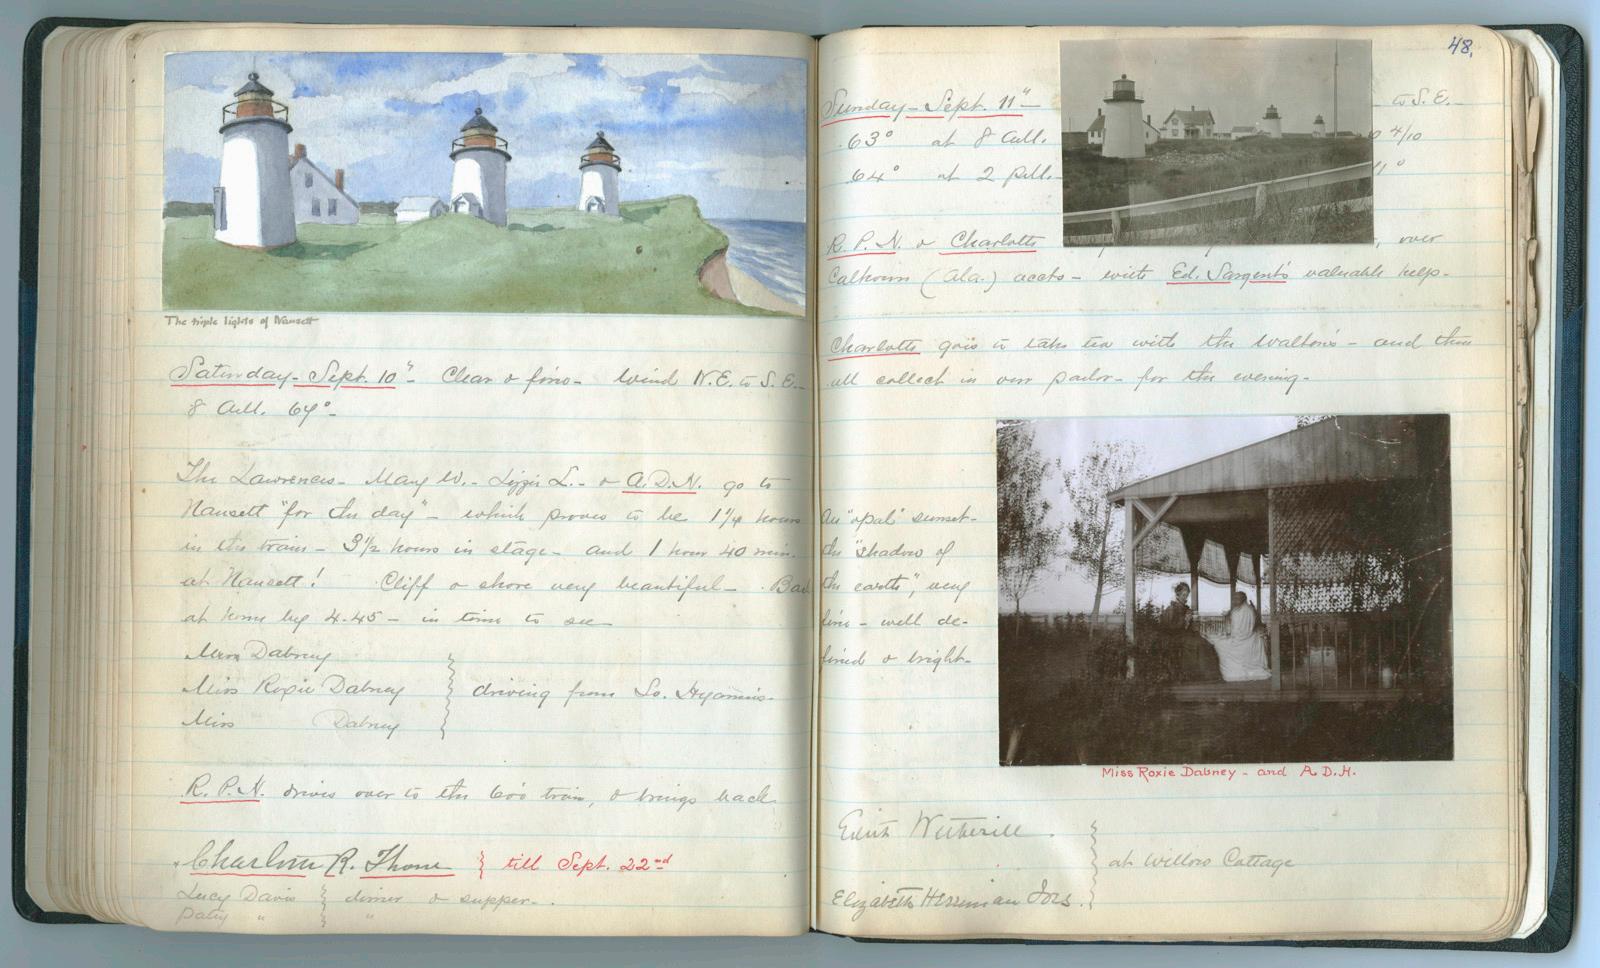 The triple lights of Nausett
Saturday - Sept. 10" - Clear & fine - Wind N.E. to S.E. -
8 A.M. 64° -
The Lawrences - Mary W. - Lizzie L. - & A.D.N. go to
Nausett "for the day" - which proves to be 1 1/4 hours
in the train - 3 1/2 hours in stage - and 1 hour 40 min.
at Nausett! Cliff & shore very beautiful -
at home by 4.45 - in time to see
Miss Roxie Dabney } driving from So. Hyannis -
Miss Dabney
R.P.N. drives over to the 600 train, & brings back
R. } till Sept. 22nd
Lucy Davis } dinner & supper -
"  "
48,
Sunday - Sept. 11" - to S.E. -
63° at 8 A.M. 4/10
64° at 2 P.M. 1°
R.P.N. & Charlotte , over
Calhoun (Ala.) accts - with Ed. Sargent's valuable help -
Charlotte goes to take tea with the Walton's - and then
all collect in our parlor - for the evening -
An "opal" sunset -
the "shadow of
the earth", very
fine - well de-
fined & bright -
Miss Roxie Dabney - and A.D.H.
Edith Wetherill } at Willow Cottage
Elizabeth